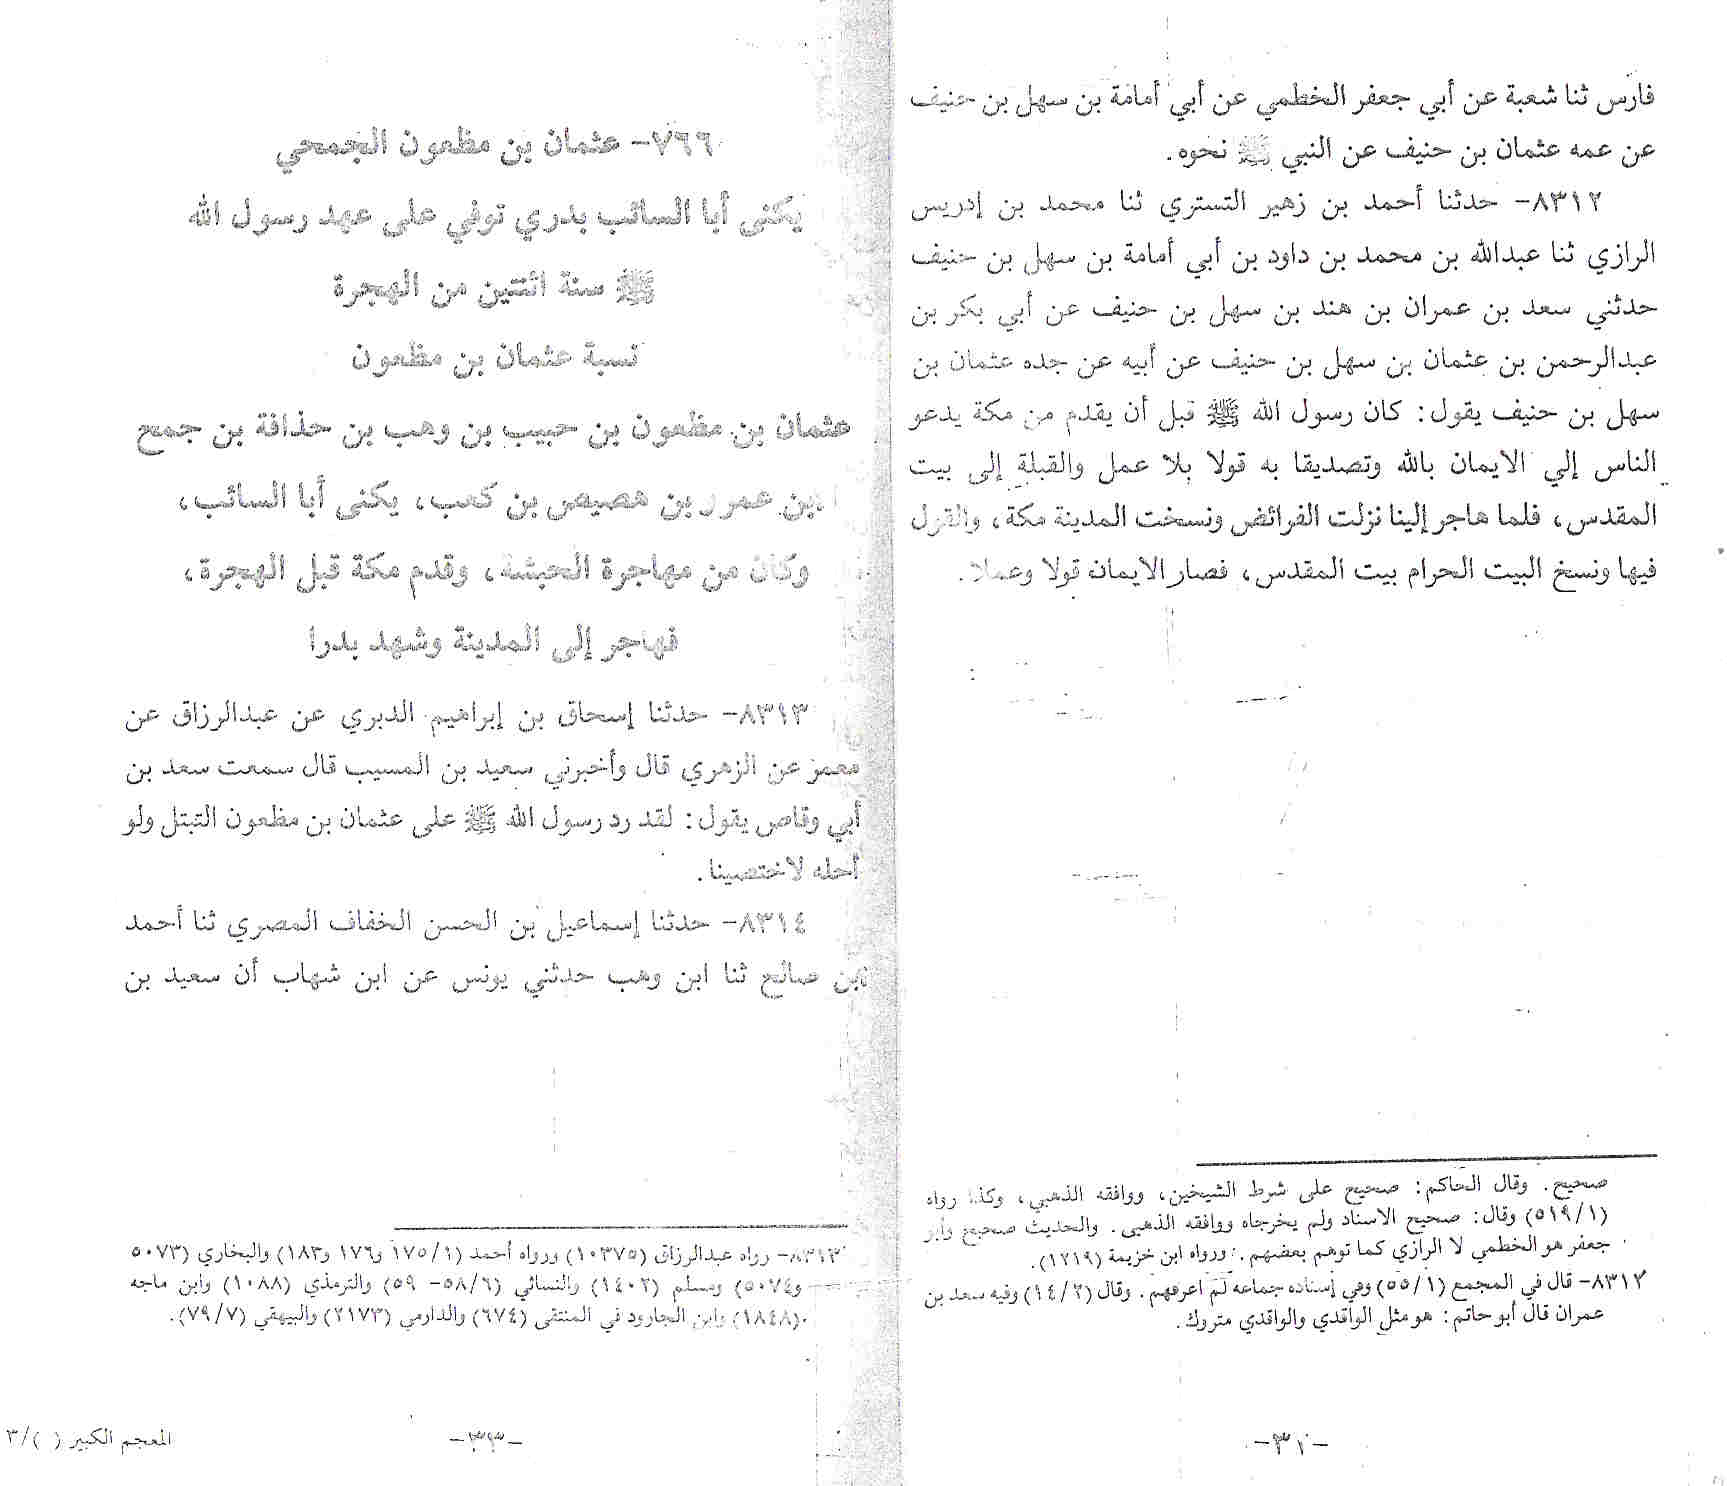 فارس ثنا شعبة عن أبي جعفر الخطمي عن أبي أمامة بن سهل بن حنيف
عن عمه عثمان بن حنيف عن النبي ﷺ نحوه.
٨٣١٢- حدثنا أحمد بن زهير التستري ثنا محمد بن إدريس
الرازي ثنا عبدالله بن محمد بن داود بن أبي أمامة بن سهل بن حنيف
حدثني سعد بن عمران بن هند بن سهل بن حنيف عن أبي بكر بن
عبدالرحمن بن عثمان بن سهل بن حنيف عن أبيه عن جده عثمان بن
سهل بن حنيف يقول: كان رسول الله ﷺ قبل أن يقدم من مكة يدعو
الناس إلي الايمان بالله وتصديقا به قولا بلا عمل والقبلة إلى بيت
المقدس، فلما هاجر إلينا نزلت الفرائض ونسخت المدينة مكة، والقول
فيها ونسخ البيت الحرام بيت المقدس، فصار الايمان قولا وعملا.
صحيح. وقال الحاكم: صحيح على شرط الشيخين، ووافقه الذهبي، وكذا رواه
(٥١٩/١) وقال: صحيح الاسناد ولم يخرجاه ووافقه الذهبي. والحديث صحيح وأبو
جعفر هو الخطمي لا الرازي كما توهم بعضهم. ورواه ابن خزيمة (١٢١٩).
٨٣١٢- قال في المجمع (٥٥/١) وفي إسناده جماعه لم اعرفهم. وقال (١٤/٢) وفيه سعد بن
عمران قال أبو حاتم: هو مثل الواقدي والواقدي متروك.
٧٦٦- عثمان بن مظعون الجمحي
يكنى أبا السائب بدري توفي على عهد رسول الله
ﷺ سنة اثنتين من الهجرة
نسبة عثمان بن مظعون
عثمان بن مظعون بن حبيب بن وهب بن حذافة بن جمح
ابن عمرو بن هصيص بن كعب، يكنى أبا السائب،
وكان من مهاجرة الحبشة، وقدم مكة قبل الهجرة،
فهاجر إلى المدينة وشهد بدرا
٨٣١٣- حدثنا إسحاق بن إبراهيم الدبري عن عبدالرزاق عن
معمر عن الزهري قال وأخبرني سعيد بن المسيب قال سمعت سعد بن
أبي وقاص يقول: لقد رد رسول الله ﷺ على عثمان بن مظعون التبتل ولو
أحله لاختصينا.
٨٣١٤- حدثنا إسماعيل بن الحسن الخفاف المصري ثنا أحمد
ابن صالح ثنا ابن وهب حدثني يونس عن ابن شهاب أن سعيد بن
٨٣١٣- رواه عبدالرزاق (١٠٣٧٥) ورواه أحمد (١٧٥/١ و١٧٦ و١٨٣) والبخاري (٥٠٧٣
و٥٠٧٤) ومسلم (١٤٠٢) والنسائي (٥٨/٦- ٥٩) والترمذي (١٠٨٨) وابن ماجه
(١٨٤٨) وابن الجارود في المنتقى (٦٧٤) والدارمي (٢١٧٣) والبيهقي (٧٩/٧).
المعجم الكبير ( )/٣